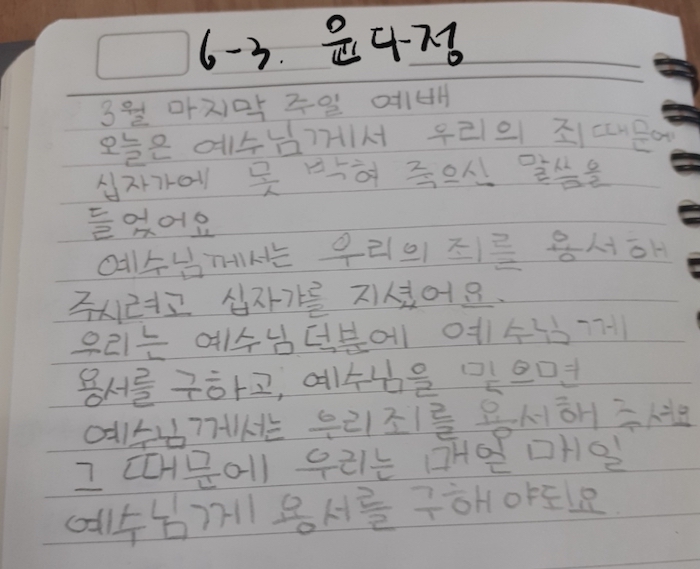 6-3. 윤다정
3월 마지막 주일 예배
오늘은 예수님께서 우리의 죄때문에
십자가에 못 박혀 죽으신 말씀을
들었어요
예수님께서는 우리의 죄를 용서해
주시려고 십자가를 지셨어요.
우리는 예수님덕분에 예수님께
용서를 구하고, 예수님을 믿으면
예수님께서는 우리죄를 용서해 주셔요
그 때문에 우리는 매일 매일
예수님께 용서를 구해야되요